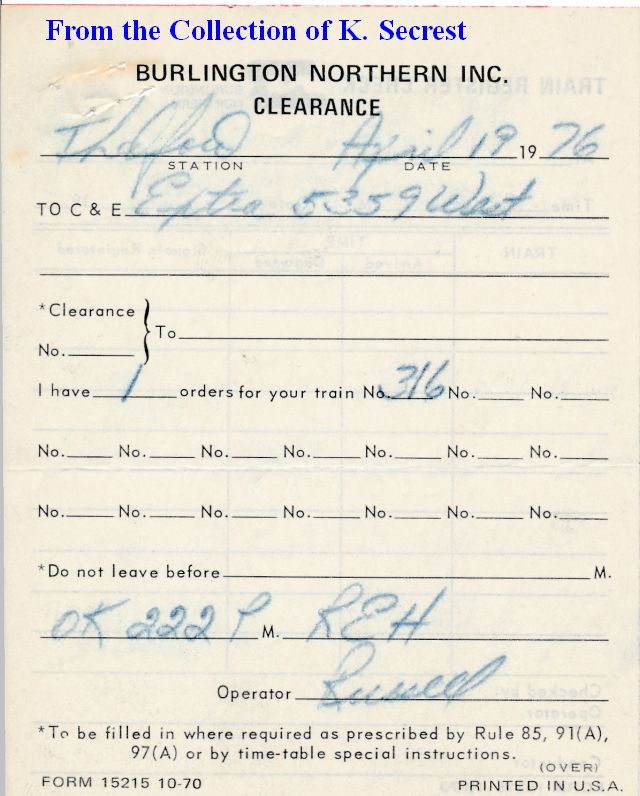 From the Collection of K. Secrest
BURLINGTON NORTHERN INC.
CLEARANCE
Thedford April 19 19 76
STATION DATE
TO C & E Extra 5359 West
*Clearance
No. To
I have 1 orders for your train No. 316 No. No.
No. No. No. No. No. No. No.
No. No. No. No. No. No. No.
*Do not leave before M.
OK 222 P M. REH
Operator Russell
*To be filled in where required as prescribed by Rule 85, 91(A),
97(A) or by time-table special instructions.
(OVER)
FORM 15215 10-70 PRINTED IN U.S.A.